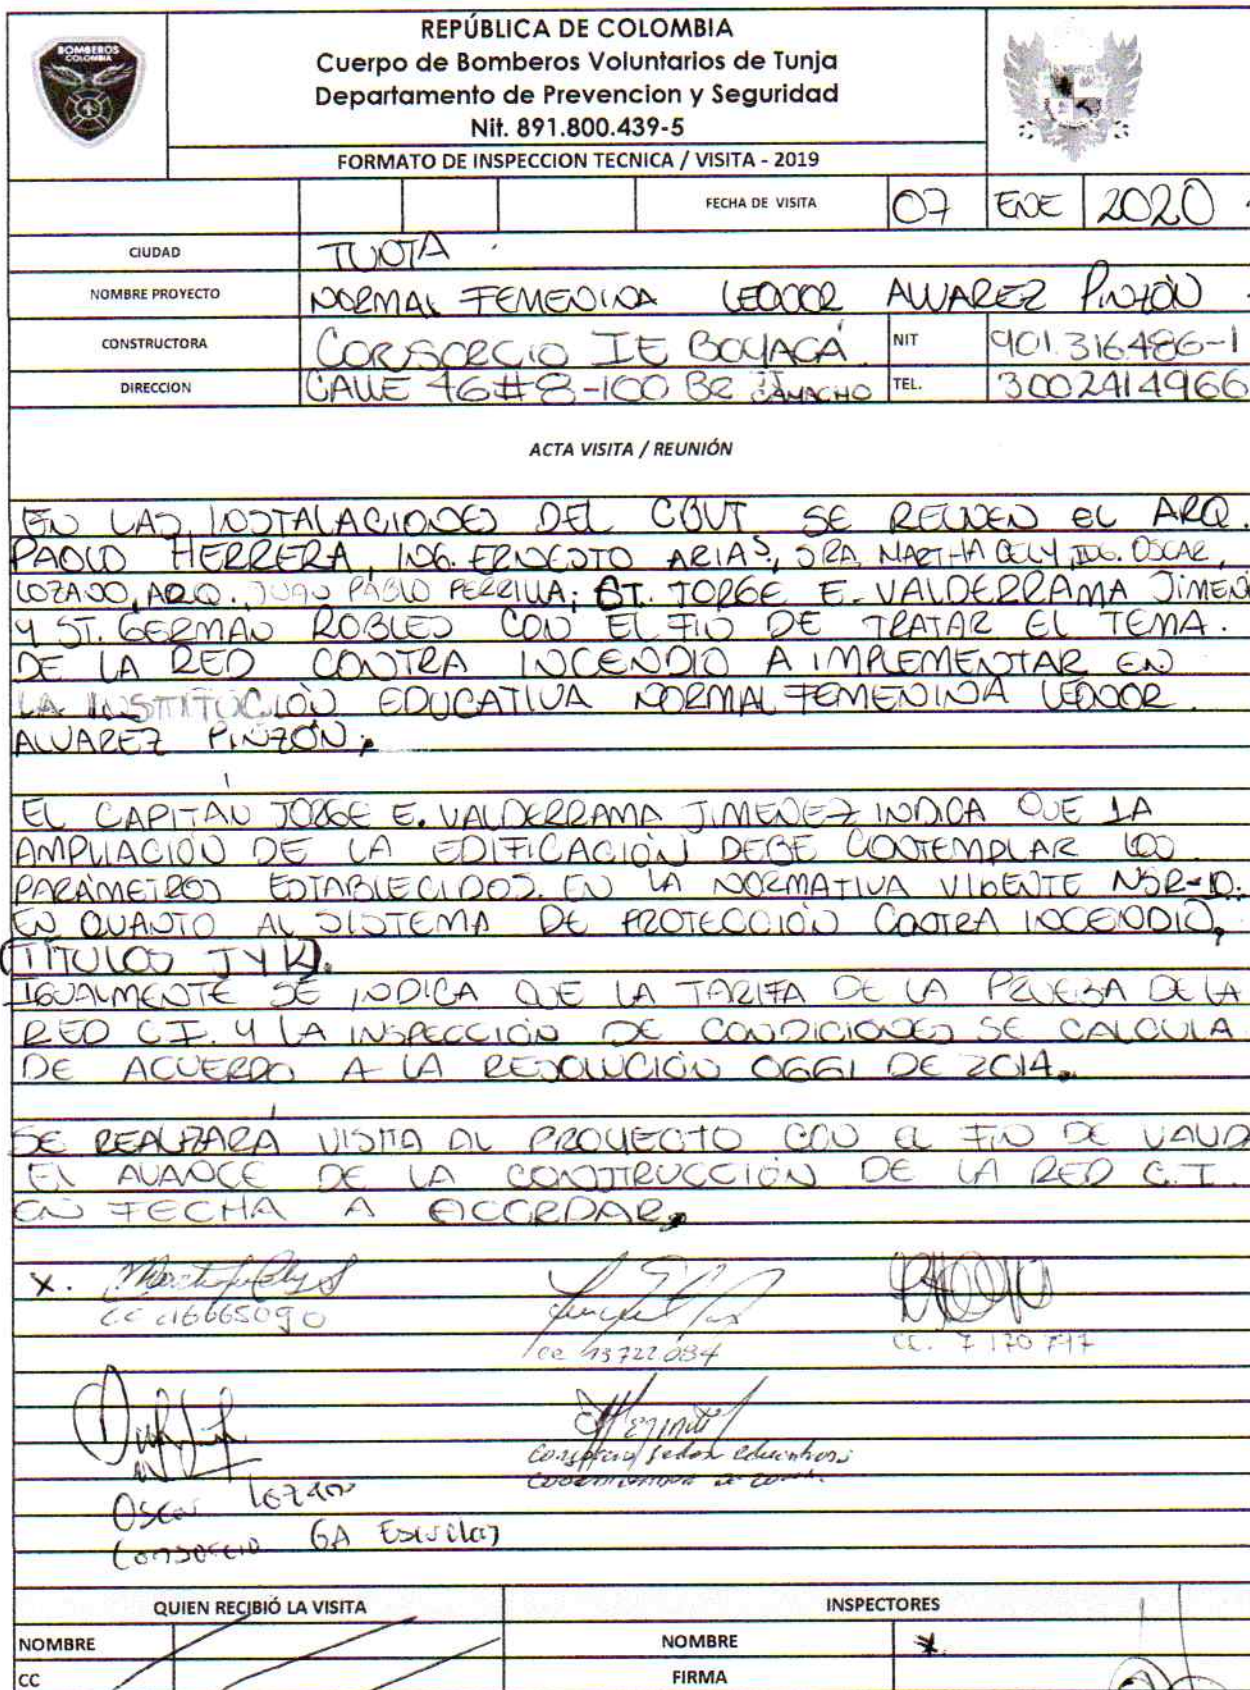 BOMBEROS
COLOMBIA
REPÚBLICA DE COLOMBIA
Cuerpo de Bomberos Voluntarios de Tunja
Departamento de Prevencion y Seguridad
Nit. 891.800.439-5
FORMATO DE INSPECCION TECNICA / VISITA - 2019
FECHA DE VISITA 07 ENE 2020
CIUDAD TUNJA
NOMBRE PROYECTO NORMAL FEMENINA LEONOR ALVAREZ PINZÓN
CONSTRUCTORA CORSORCIO IE BOYACÁ NIT 901.316.486-1
DIRECCION CALLE 46#8-100 BR JJ CAMACHO TEL. 3002414966
ACTA VISITA / REUNIÓN
EN LAS INSTALACIONES DEL CBVT SE REUNEN EL ARQ.
PAOLO HERRERA, ING. ERNESTO ARIAS, DRA. MARTHA CELY, ING. OSCAR
LOZANO, ARQ. JUAN PABLO PERRILLA; CT. JORGE E. VALDERRAMA JIMEN
Y ST. GERMAN ROBLES CON EL FIN DE TRATAR EL TEMA.
DE LA RED CONTRA INCENDIO A IMPLEMENTAR EN
LA INSTITUCIÓN EDUCATIVA NORMAL FEMENINA LEONOR
ALVAREZ PINZÓN.
EL CAPITAN JORGE E. VALDERRAMA JIMENEZ INDICA QUE LA
AMPLIACIÓN DE LA EDIFICACIÓN DEBE CONTEMPLAR LOS
PARÁMETROS ESTABLECIDOS EN LA NORMATIVA VIGENTE NSR-10.
EN QUANTO AL SISTEMA DE PROTECCIÓN CONTRA INCENDIO,
(TITULOS J Y K).
IGUALMENTE SE INDICA QUE LA TARIFA DE LA PRUEBA DE LA
RED C.I. Y LA INSPECCIÓN DE CONDICIONES SE CALCULA
DE ACUERDO A LA RESOLUCIÓN 0661 DE 2014.
SE REALIZARA VISITA AL PROYECTO CON EL FIN DE VALID
EL AVANCE DE LA CONSTRUCCIÓN DE LA RED C.I.
EN FECHA A ACORDAR.
X.
CC
CC 13722.084
CC. 7 170 747
Oscar Lozano
Consorcio GA Escuelas
Consorcio sedes educativas
QUIEN RECIBIÓ LA VISITA INSPECTORES
NOMBRE NOMBRE
CC FIRMA